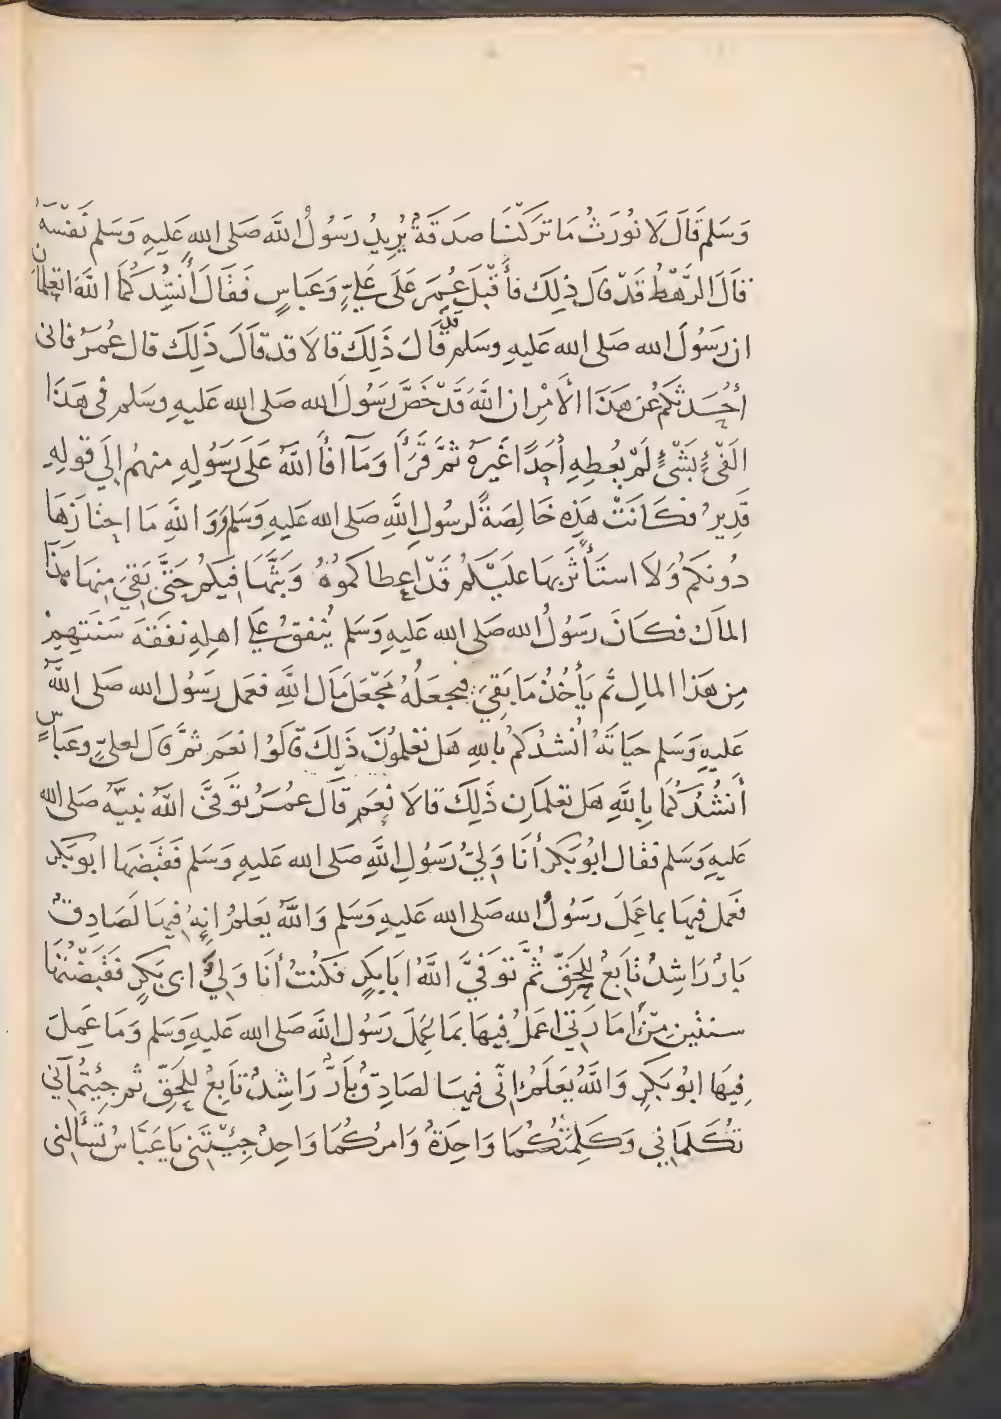 وَسَلم قَالَ لَا نُورَثُ مَا تَرَكْنَا صَدَقَةٌ يُرِيدُ رَسُولُ اللَّه صَلى الله عَليهِ وَسَلم نَفْسَهُ
قالَ الرَّهْطُ قَدْ قالَ ذلِكَ فأَقْبَلَ عُمَرَ عَلَى عَليٍّ وَعَباسٍ فَقَالَ أَنشُدُكُمَا اللَّهَ اتعلمَانِ
ان رَسُولَ الله صَلى الله عَليهِ وسَلم قَدْ قَالَ ذَلِكَ قالَا قد قالَ ذَلِكَ قال عُمرُ فانى
أُحَدثكُمْ عَن هَذَا الأَمْرِ ان اللَّهَ قَدْ خَصَّ رَسُولَ الله صَلى الله عَليهِ وسَلم فى هَذَا
الفَىْءِ بشَىْءٍ لَمْ يعُطِهِ أحَدًا غَيرَهُ ثمَّ قَرَأَ وَمَا افَاَ اللَّهُ عَلَى رَسُولِهِ منهُم إلَى قولِهِ
قَدِيرُ فكَانَتْ هَذِهِ خَالِصَةً لرسُولِ اللَّهِ صَلى الله عَليهِ وَسَلم وَوَاللَّهِ مَا احتَازَهَا
دُونكُم وَلَا استَأْثَرَ بهَا عليْكُمْ قَدْ اعطاكمُوهُ وَبَثَّهَا فيكُمْ حَتَّى بَقىَ مِنهَا هَذَا
المالُ فكَانَ رَسُولُ الله صَلى الله عَليهِ وَسَلم يُنْفقُ عَلَى اهلِهِ نفَقَةَ سَنَتِهِمْ
مِن هَذَا المالِ ثم يَأْخُذُ مَا بَقِيَ فيجعَلُهُ مَجْعَلَ مَالِ اللَّهِ فعَمل رَسُول الله صَلى اللَّه
عَليهِ وَسَلم حيَاتَهُ أنشدُكمُ باللهِ هَل تعْلمُونَ ذَلِكَ قَالُوا نعَم ثمَّ قال لعَليٍّ وعَباسٍ
أَنشُدُكُمَا بِاللَّهِ هَل تعلمَانِ ذَلِكَ قالَا نعَم قَالَ عمُرُ تَوَفَّى اللَّهُ نبيَّهُ صَلى الله
عَليهِ وَسَلم فقال ابُو بَكر أنَا وَلِيُّ رَسُولِ اللَّهِ صَلى الله عَليهِ وَسَلم فَقبَضَهَا ابو بكر
فعَمل فيهَا بما عمِلَ رَسُولُ الله صَلى الله عَليهِ وَسَلم وَاللَّهُ يَعلمُ انهُ فيهَا لَصَادِقُ
بَارٌ رَاشِدٌ تَابعٌ للحَقِّ ثمَّ تَوَفيَّ اللَّهُ ابَا بَكرٍ فَكنْتُ أنَا وَلِيَّ ابى بَكرٍ فقَبَضْتُهَا
سنتين منْ امَارَتى اعمَلُ فيهَا بمَا عَمِلَ رَسُول اللَّه صَلى الله عَليهِ وَسَلم وَمَا عَمِلَ
فِيهَا ابُو بَكرٍ وَاللَّهُ يَعلَمُ انّى فيهَا لصَادِقُ بَارٌّ رَاشِدٌ تَابعٌ للحَقِّ ثم جِئتُمَانى
تُكَلمَانِي وَكَلِمَتُكُمَا وَاحِدَةُ وَامرُكُمَا وَاحِدُ جِئْتَنى يَا عَبَّاسُ تَسْأَلنى